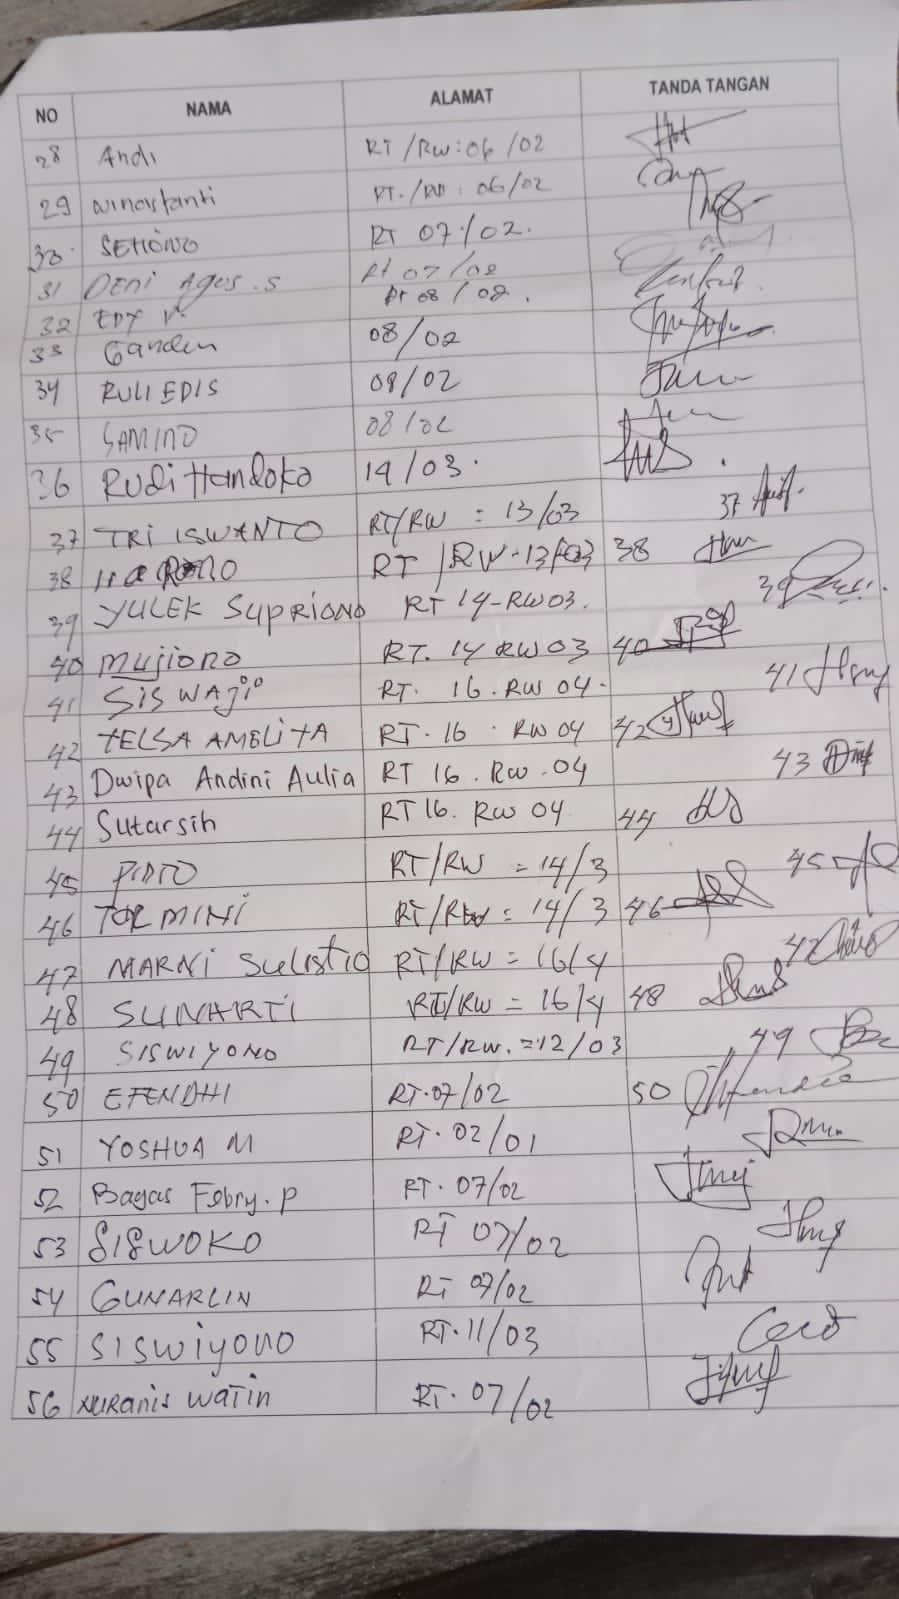 NO NAMA ALAMAT TANDA TANGAN
28 Andi RT/RW:06/02
29 winastanti RT./RW: 06/02
30. SETIONO RT 07/02.
31 DENI Agus.S Rt 07/02
32 EDY V. Rt 08/02.
33 Ganden 08/02
34 RULI EDIS 08/02
35 SAMINO 08/02
36 Rudi Handoko 14/03.
37 TRI ISWANTO RT/RW = 13/03 37
38 RT/RW-13/03 38
39 YULEK SUPRIONO RT 14-RW03. 39
40 Mujiono RT. 14 RW 03 40
41 SISWAJi RT. 16. RW 04. 41
42 TELSA AMELITA RT. 16 . RW 04 42
43 Dwipa Andini Aulia RT 16. RW. 04 43
44 Sutarsih RT 16. RW 04 44
45 PINTO RT/RW = 14/3 45
46 TORMINI RT/RW = 14/3 46
47 MARNI Sulistio RT/RW = 16/4 47
48 SUNARTI RT/RW = 16/4 48
49 SISWIYONO RT/RW. = 12/03 49
50 EFENDHI RT.07/02 50
51 YOSHUA M RT. 02/01
52 Bagas Febry. P RT. 07/02
53 SISWOKO RT 07/02
54 GUNARLIN RT 07/02
55 SISWIYONO RT.11/03
56 NURANIS WATIN RT. 07/02